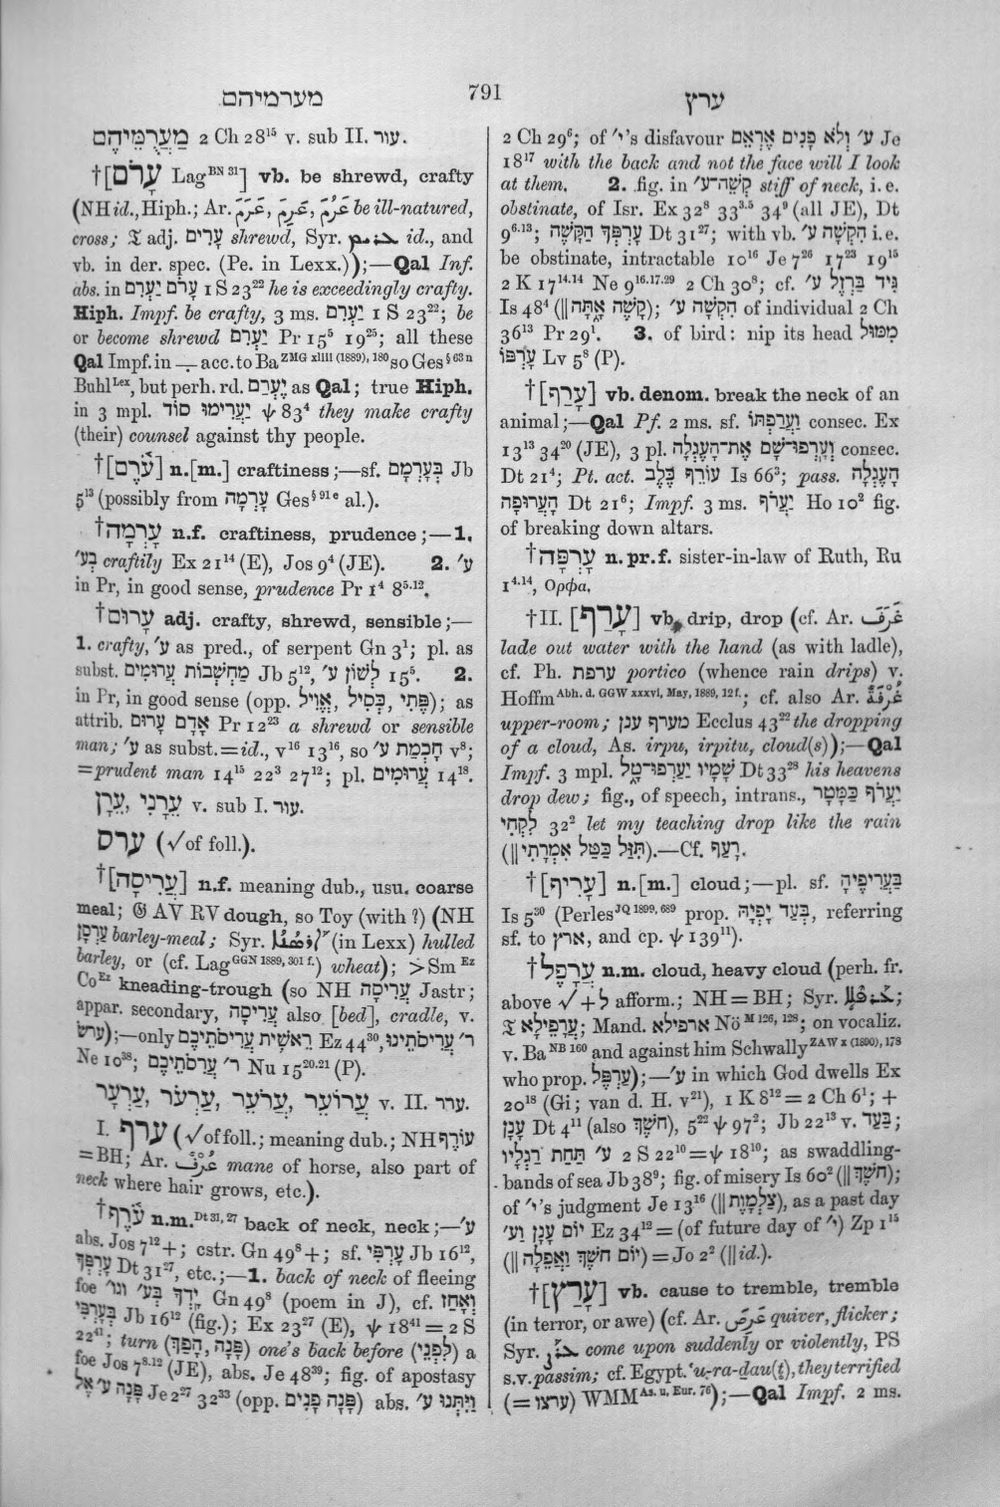 מערמיהם
791
ערץ
מַעֲרֻמֵּיהֶם 2 Ch 28¹⁵ v. sub II. עור.
†[עָרֹם Lag BN 31] vb. be shrewd, crafty
(NH id., Hiph.; Ar. عَرُمَ, عَرِمَ, عَرَمَ be ill-natured,
cross; 𝔗 adj. עָרִים shrewd, Syr. id., and
vb. in der. spec. (Pe. in Lexx.));—Qal Inf.
abs. in עָרֹם יַעְרִם 1 S 23²² he is exceedingly crafty.
Hiph. Impf. be crafty, 3 ms. יַעְרִם 1 S 23²²; be
or become shrewd יַעְרִם Pr 15⁵ 19²⁵; all these
Qal Impf. in — acc. to Ba ZMG xliii (1889), 180 so Ges § 63 n
Buhl Lex, but perh. rd. יֶעְרַם as Qal; true Hiph.
in 3 mpl. יַעֲרִימוּ סוֹד ψ 83⁴ they make crafty
(their) counsel against thy people.
†[עֹ֫רֶם] n.[m.] craftiness;—sf. בְּעָרְמָם Jb
5¹³ (possibly from עָרְמָה Ges § 91 e al.).
†עָרְמָה n.f. craftiness, prudence;—1.
בְּע׳ craftily Ex 21¹⁴ (E), Jos 9⁴ (JE). 2. ע׳
in Pr, in good sense, prudence Pr 1⁴ 8⁵·¹².
†עָרוּם adj. crafty, shrewd, sensible;—
1. crafty, ע׳ as pred., of serpent Gn 3¹; pl. as
subst. מַחְשְׁבוֹת עֲרוּמִים Jb 5¹², לְשׁוֹן ע׳ 15⁵. 2.
in Pr, in good sense (opp. פֶּתִי, כְּסִיל, אֱוִיל); as
attrib. אָדָם עָרוּם Pr 12²³ a shrewd or sensible
man; ע׳ as subst. = id., v¹⁶ 13¹⁶, so חָכְמַת ע׳ v⁸;
= prudent man 14¹⁵ 22³ 27¹²; pl. עֲרוּמִים 14¹⁸.
עֵרָן, עֵרָנִי v. sub I. עור.
ערס (√ of foll.).
†[עֲרִיסָה] n.f. meaning dub., usu. coarse
meal; 𝔊 AV RV dough, so Toy (with ?) (NH
עַרְסָן barley-meal; Syr. (in Lexx) hulled
barley, or (cf. Lag GGN 1889, 301 f.) wheat); > Sm Ez
Co Ez kneading-trough (so NH עֲרִיסָה Jastr;
appar. secondary, עֲרִיסָה also [bed], cradle, v.
ערשׂ);—only רֵאשִׁית עֲרִיסֹתֵיכֶם Ez 44³⁰, ר׳ עֲרִיסֹתֵינוּ
Ne 10³⁸; ר׳ עֲרִסֹתֵיכֶם Nu 15²⁰·²¹ (P).
עֲרוֹעֵר, עֲרֹעֵר, עַרְעֹר, עַרְעָר v. II. ערר.
I. ערף (√ of foll.; meaning dub.; NH עוֹרֶף
= BH; Ar. عُرْفٌ mane of horse, also part of
neck where hair grows, etc.).
†עֹ֫רֶף n.m. Dt 31, 27 back of neck, neck;—ע׳
abs. Jos 7¹² +; cstr. Gn 49⁸ +; sf. עָרְפִּי Jb 16¹²,
עָרְפְּךָ Dt 31²⁷, etc.;—1. back of neck of fleeing
foe יָדְךָ בְּע׳ וגו׳ Gn 49⁸ (poem in J), cf. וְאָחַז
בְּעָרְפִּי Jb 16¹² (fig.); Ex 23²⁷ (E), ψ 18⁴¹ = 2 S
22⁴¹; turn (פָּנָה, הָפַךְ) one's back before (לִפְנֵי) a
foe Jos 7⁸·¹² (JE), abs. Je 48³⁹; fig. of apostasy
פָּנָה ע׳ אֶל Je 2²⁷ 32³³ (opp. פָּנָה פָנִים) abs. וַיִּתְּנוּ ע׳
2 Ch 29⁶; of י׳'s disfavour ע׳ וְלֹא פָנִים אֶרְאֵם Je
18¹⁷ with the back and not the face will I look
at them. 2. fig. in קְשֵׁה־ע׳ stiff of neck, i.e.
obstinate, of Isr. Ex 32⁹ 33³·⁵ 34⁹ (all JE), Dt
9⁶·¹³; עָרְפְּךָ הַקָּשֶׁה Dt 31²⁷; with vb. הִקְשָׁה ע׳ i.e.
be obstinate, intractable 10¹⁶ Je 7²⁶ 17²³ 19¹⁵
2 K 17¹⁴·¹⁴ Ne 9¹⁶·¹⁷·²⁹ 2 Ch 30⁸; cf. גִּיד בַּרְזֶל ע׳
Is 48⁴ (‖ קָשֶׁה אָתָּה); הִקְשָׁה ע׳ of individual 2 Ch
36¹³ Pr 29¹. 3. of bird: nip its head מִמּוּל
עָרְפּוֹ Lv 5⁸ (P).
†[עָרַף] vb. denom. break the neck of an
animal;—Qal Pf. 2 ms. sf. וַעֲרַפְתּוֹ consec. Ex
13¹³ 34²⁰ (JE), 3 pl. וְעָרְפוּ־שָׁם אֶת־הָעֶגְלָה consec.
Dt 21⁴; Pt. act. עוֹרֵף כֶּלֶב Is 66³; pass. הָעֶגְלָה
הָעֲרוּפָה Dt 21⁶; Impf. 3 ms. יַעֲרֹף Ho 10² fig.
of breaking down altars.
†עָרְפָּה n.pr.f. sister-in-law of Ruth, Ru
1⁴·¹⁴, Ορφα.
†II. [עָרַף] vb. drip, drop (cf. Ar. غَرَفَ
lade out water with the hand (as with ladle),
cf. Ph. ערפת portico (whence rain drips) v.
Hoffm Abh. d. GGW xxxvi, May, 1889, 12 f.; cf. also Ar. غُرْفَةٌ
upper-room; מערף ענן Ecclus 43²² the dropping
of a cloud, As. irpu, irpitu, cloud(s));—Qal
Impf. 3 mpl. שָׁמָיו יַעַרְפוּ־טָל Dt 33²⁸ his heavens
drop dew; fig., of speech, intrans., יַעֲרֹף כַּמָּטָר
לִקְחִי 32² let my teaching drop like the rain
(‖ תִּזַּל כַּטַּל אִמְרָתִי).—Cf. רָעַף.
†[עָרִיף] n.[m.] cloud;—pl. sf. בַּעֲרִיפֶיהָ
Is 5³⁰ (Perles JQ 1899, 689 prop. בְּעַד יָפְיָהּ, referring
sf. to ארץ, and cp. ψ 139¹¹).
†עֲרָפֶל n.m. cloud, heavy cloud (perh. fr.
above √ + ל afform.; NH = BH; Syr. ܥܪܦܠܐ;
𝔗 עֲרָפֵילָא; Mand. ארפילא Nö M 126, 128; on vocaliz.
v. Ba NB 160 and against him Schwally ZAW x (1890), 178
who prop. עַרְפֶּל);—ע׳ in which God dwells Ex
20¹⁸ (Gi; van d. H. v²¹), 1 K 8¹² = 2 Ch 6¹; +
עָנָן Dt 4¹¹ (also חֹשֶׁךְ), 5²² ψ 97²; Jb 22¹³ v. בְּעַד;
ע׳ תַּחַת רַגְלָיו 2 S 22¹⁰ = ψ 18¹⁰; as swaddling-
bands of sea Jb 38⁹; fig. of misery Is 60² (‖ חֹשֶׁךְ);
of י׳'s judgment Je 13¹⁶ (‖ צַלְמָוֶת), as a past day
יוֹם עָנָן וַע׳ Ez 34¹² = (of future day of י׳) Zp 1¹⁵
(‖ יוֹם חֹשֶׁךְ וַאֲפֵלָה) = Jo 2² (‖ id.).
†[עָרַץ] vb. cause to tremble, tremble
(in terror, or awe) (cf. Ar. عَرِصَ quiver, flicker;
Syr. come upon suddenly or violently, PS
s.v. passim; cf. Egypt. ʻu-ra-dau(t), they terrified
(= ערצו) WMM As. u. Eur. 76);—Qal Impf. 2 ms.